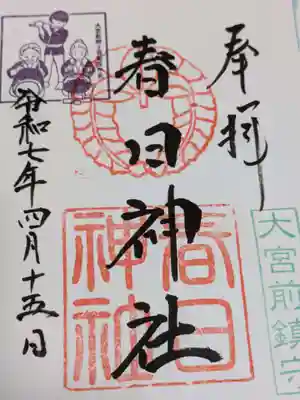 奉拝
春日神社
春日
神社
令和七年四月十五日
大宮前鎮守